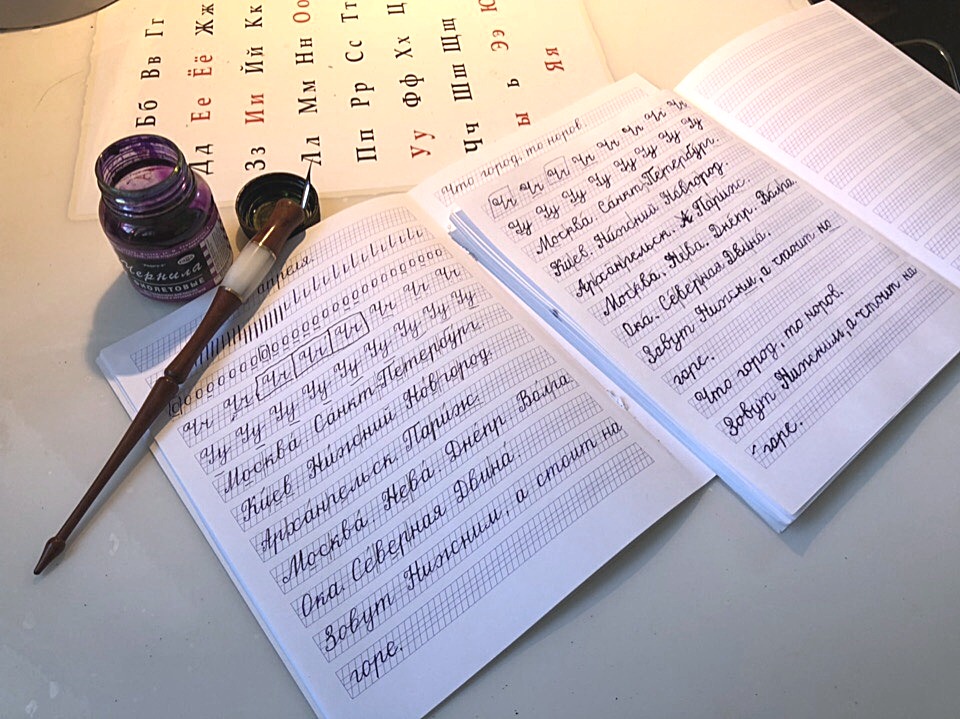 Бб Вв Гг
Дд Ее Ёё Жж
Зз Ии Йй Кк
Лл Мм Нн Оо
Пп Рр Сс Тт
Уу Фф Хх Ц
Чч Шш Щщ
ы ь Ээ Ю
Яя
Чернила
ФИОЛЕТОВЫЕ
апреля.
Чч Чч Чч Чч Чч Чч Чч
Уу Уу Уу Уу Уу Уу Уу Уу Уу
Москва́. Санкт-Петербург.
Ки́ев. Ни́жний Новгород.
Арха́нгельск. Париж.
Москва́. Нева́. Днепр. Во́лга
Ока. Се́верная Двина́.
Зовут Нижним, а стоит на
горе.
Что город, то норов
Чч Чч Чч Чч Чч Чч Чч Чч
Уу Уу Уу Уу Уу Уу Уу Уу
Москва́. Санкт-Петербург.
Киев. Ни́жний Новгород.
Арха́нгельск. Париж.
Москва́. Нева. Днепр. Волга.
Ока. Се́верная Двина́.
Зовут Нижним, а стоит на
горе.
Что город, то норов.
Зовут Нижним, а стоит на
горе.